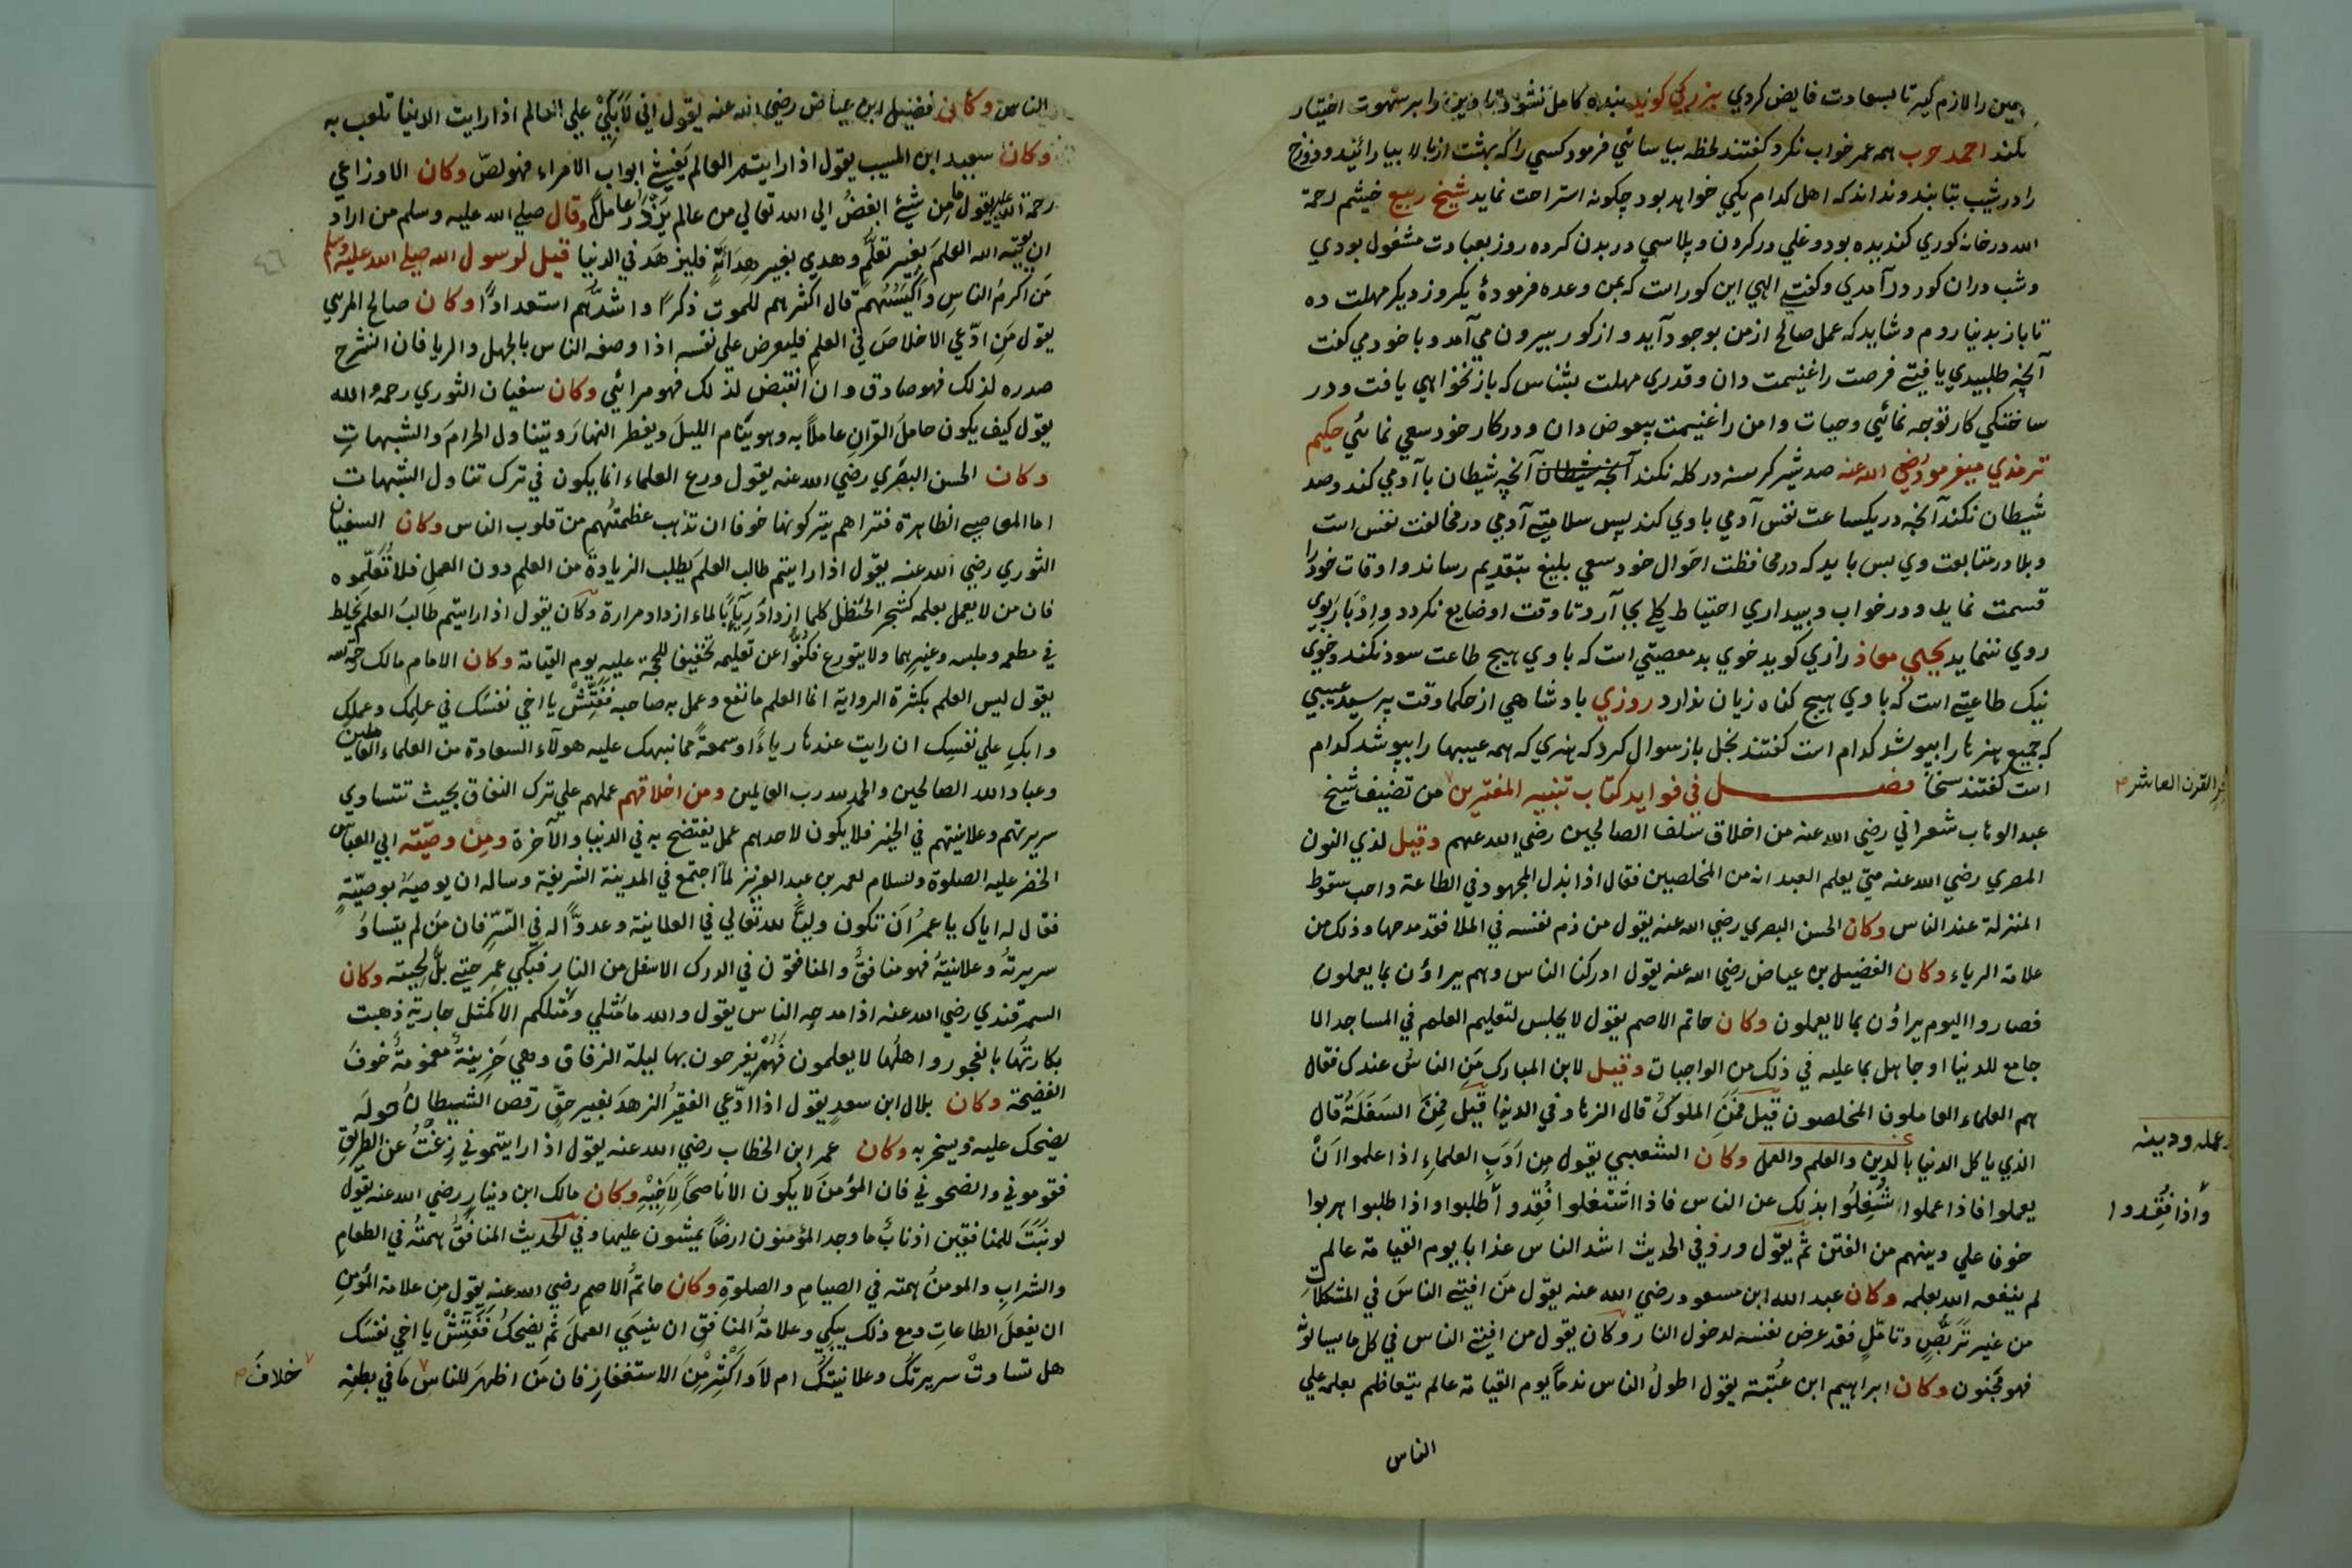 یمین را لازم کیر تا بسعادت فایض کردي بزرکي کوید بنده کامل نشود تا دین را بر شهوت اختیار
نکند احمد حرب همه عمر خواب نکرد کفتند لحظه بیاسائي فرمود کسي را که بهشت از بالا بیارایند و دوزخ
را در شیب بتابند و نداند که اهل کدام یکي خواهد بود چکونه استراحت نماید شیخ ربیع خیثم رحمة
الله در خانه کوري کنده بود و غلي در کردن و پلاسي در بدن کرده روز بعبادت مشغول بودي
و شب دران کور در آمدي و کفتي الهي این کور است که بمن وعده فرمودهٔ یکروز دیکر مهلت ده
تا باز بدنیا روم و شاید که عمل صالح از من بوجود آید و از کور بیرون مي آمد و با خود مي کفت
آنچه طلبیدي یافتي فرصت را غنیمت دان و قدري مهلت بشناس که باز نخواهي یافت و در
ساختکي کار توجه نمائي وحیات و امن را غنیمت بیعوض دان و در کار خود سعي نمائي حکیم
ترمذي میفرمود رضي الله عنه صد شیر کرسنه در کله نکند آنچه شیطان آنچه شیطان با آدمي کند و صد
شیطان نکند آنچه در یکساعت نفس آدمي با وي کند پس سلامتي آدمي در مخالفت نفس است
و بلا در متابعت وي بس باید که در محافظت احوال خود سعي بلیغ بتقدیم رساند و اوقات خود را
قسمت نماید و در خواب و بیداري احتیاط کلي بجا آرد تا وقت او ضایع نکردد و ادبار بوي
روي ننماید یحیي معاذ رازي کوید خوي بد معصیتي است که با وي هیچ طاعت سود نکند و خوي
نیک طاعتي است که با وي هیچ کناه زیان ندارد روزي بادشاهي از حکما وقت پرسید عیبي
که جمیع هنرها را بپوشد کدام است کفتند بخل باز سوال کرد که هنري که همه عیبها را بپوشد کدام
است کفتند سخا فصل في فواید کتاب تنبیه المغترین من تصنیف شیخ
عبد الوهاب شعراني رضي الله عنه من اخلاق سلف الصالحین رضي الله عنهم وقیل لذي النون
المصري رضي الله عنه متي یعلم العبد انه من المخلصین فقال اذا بذل المجهود في الطاعة واحب سقوط
المنزلة عند الناس وکان الحسن البصري رضي الله عنه یقول من ذم نفسه في الملا فقد مدحها وذلک من
علامة الریاء وکان الفضیل بن عیاض رضي الله عنه یقول ادرکنا الناس وهم یراؤن بما یعملون
فصاروا الیوم یراؤن بما لا یعملون وکان حاتم الاصم یقول لا یجلس لتعلیم العلم في المساجد الا
جامع للدنیا او جاهل بما علیه في ذلک من الواجبات وقیل لابن المبارک مَنِ الناسُ عندک فقال
هم العلماء العاملون المخلصون قیل فمَنِ الملوکُ قال الزهاد في الدنیا قیل فمَنِ السَفَلَةُ قال
الذي یاکل الدنیا بالدین والعلم والعمل وکان الشعبي یقول مِن اَدَبِ العلماءِ اذا علموا اَنْ
یعملوا فاذا عملوا شُغِلُوا بذلک عن الناس فاذا اشتغلوا فُقِدوا طلبوا واذا طلبوا هربوا
خوفا علي دینهم من الفتن ثم یقول ورد في الحدیث اشد الناس عذابا یوم القیامة عالم
لم ینفعه الله بعلمه وکان عبد الله ابن مسعود رضي الله عنه یقول مَن افتي الناسَ في المشکلاتِ
من غیر تَرَبُّصٍ وتامّلٍ فقد عرض نفسه لدخول النار وکان یقول من افتي الناس في کل ما یسالوٗنه
فهو مجنون وکان ابراهیم ابن عُتْبة یقول اطولُ الناس ندماً یوم القیامة عالم یتعاظم بعلمه علي
الناس
القرن العاشر
وعمله ودینه
واذا فُقِدوا
الناس وکان فضیل ابن عیاض رضي الله عنه یقول اني لَاَبْکي علي العالم اذا رایت الدنیا تلعب به
وکان سعید ابن المسیب یقول اذا رایتم العالم یَغْشي ابواب الامراء فهو لصّ وکان الاوزاعي
رحمة الله علیه یقول ما مِن شيْ ابغضُ الي الله تعالي من عالم یَزُورُ عاملاً وقال صلي الله علیه وسلم من اراد
ان یؤتیه الله العلمَ بغیر تعلّمٍ وهدي بغیر هِدَایَةٍ فلیزهَد في الدنیا قیل لرسول الله صلي الله علیه وسلم
مَن اکرمُ الناسِ واکیَسُهُم قال اکثرهم للموت ذکرًا واشدُّهم استعدادًا وکان صالح المرسي
یقول مَنِ ادّعي الاخلاصَ في العلم فلیعرض علي نفسه اذا وصفه الناس بالجهل والریا فان انشرح
صدره لذلک فهو صادق وان انقبض لذلک فهو مرائي وکان سفیان الثوري رحمه الله
یقول کیف یکون حاملَ القرانِ عاملاً به وهو ینام اللیلَ ویفطر النهارَ ویتناول الحرامَ والشبهاتِ
وکان الحسن البصري رضي الله عنه یقول ورع العلماء انما یکون في ترک تناول الشبهات
اما المعاصي الظاهرة فتراهم یترکونها خوفا ان تذهب عظمتُهم من قلوب الناس وکان السفیان
الثوري رضي الله عنه یقول اذا رایتم طالب العلم یطلب الزیادة من العلمِ دون العملِ فلا تُعَلّموه
فان من لا یعمل بعلمه کشجر الحنظل کلما ازداد رِیّاً بالماء ازداد مرارة وکان یقول اذا رایتم طالبَ العلم یخلط
في مطعمه وملبسه وغیرهما ولا یتورع فکفّوا عن تعلیمه تخفیفا للحجة علیه یوم القیامة وکان الامام مالک رحمه الله
یقول لیس العلم بکثرة الروایة انما العلم ما نفع وعمل به صاحبه فَفَتِّشْ یا اخي نفسَک في علمِک وعملِک
وابکِ علي نفسِک ان رایت عندها ریاءً او سمعةً مما نبهک علیه هولاء السعادة من العلماء العاملین
وعباد الله الصالحین والحمد لله رب العالمین ومن اخلاقهم عملهم علي ترک النفاق بحیث تتساوي
سریرتهم وعلانیتهم في الخیر فلا یکون لاحدهم عمل یفتضح به في الدنیا والآخرة ومِن وصیّته ابي العباس
الخضر علیه الصلوة والسلام لعمر بن عبد العزیز لما اجتمع في المدینة الشریفة وساله ان یوصیَهُ بوصیّةٍ
فقال له ایاک یا عمرُ اَن تکون ولیّاً لله تعالي في العلانیة وعدوّاً له في السّرِ فان مَن لم یتساوَ
سریرتُهُ وعلانیتُهُ فهو منافقٌ والمنافقون في الدرک الاسفل من النارِ فبکي عمر حتي بلَّ لحیته وکان
السمرقندي رضي الله عنه اذا مدحه الناس یقول والله ما مَثَلي ومَثَلکم الا کمثل جاریة ذهبت
بکارتُها بالفجور واهلُها لا یعلمون فَهُمْ یفرحون بها لیلة الزفاق وهي حَزِینةٌ مغمومةٌ خوفَ
الفضیحة وکان بلال ابن سعدٍ یقول اذا ادّعي الفقیرُ الزهدَ بغیر حقٍّ رقص الشیطانُ حولَه
یضحک علیه ویسخر به وکان عمر ابن الخطاب رضي الله عنه یقول اذا رایتموني زِغْتُ عن الطریقِ
فقوموني وانصحوني فان المؤمنَ لا یکون الا ناصحاً لِاَخِیْهِ وکان مالک ابن دینارٍ رضي الله عنه یقول
لو نبَتَ للمنافقین اذنابٌ ما وجد المؤمنون ارضاً یمشون علیها وفي الحدیث المنافقُ همتُهُ في الطعامِ
والشرابِ والمومنُ همته في الصیامِ والصلوةِ وکان حاتمُ الاصم رضي الله عنه یقول مِن علامة المؤمنِ
ان یفعلَ الطاعاتِ ومع ذلک یبکي وعلامةُ المنافقِ ان ینسَي العملَ ثم یضحکُ فَفَتِّشْ یا اخي نفسَک
هل تساوتْ سریرتُک وعلانیتُک ام لا وَاَکْثِرْ مِنَ الاستغفارِ فان مَن اظهرَ للناس ما في بطنه
خلافَ